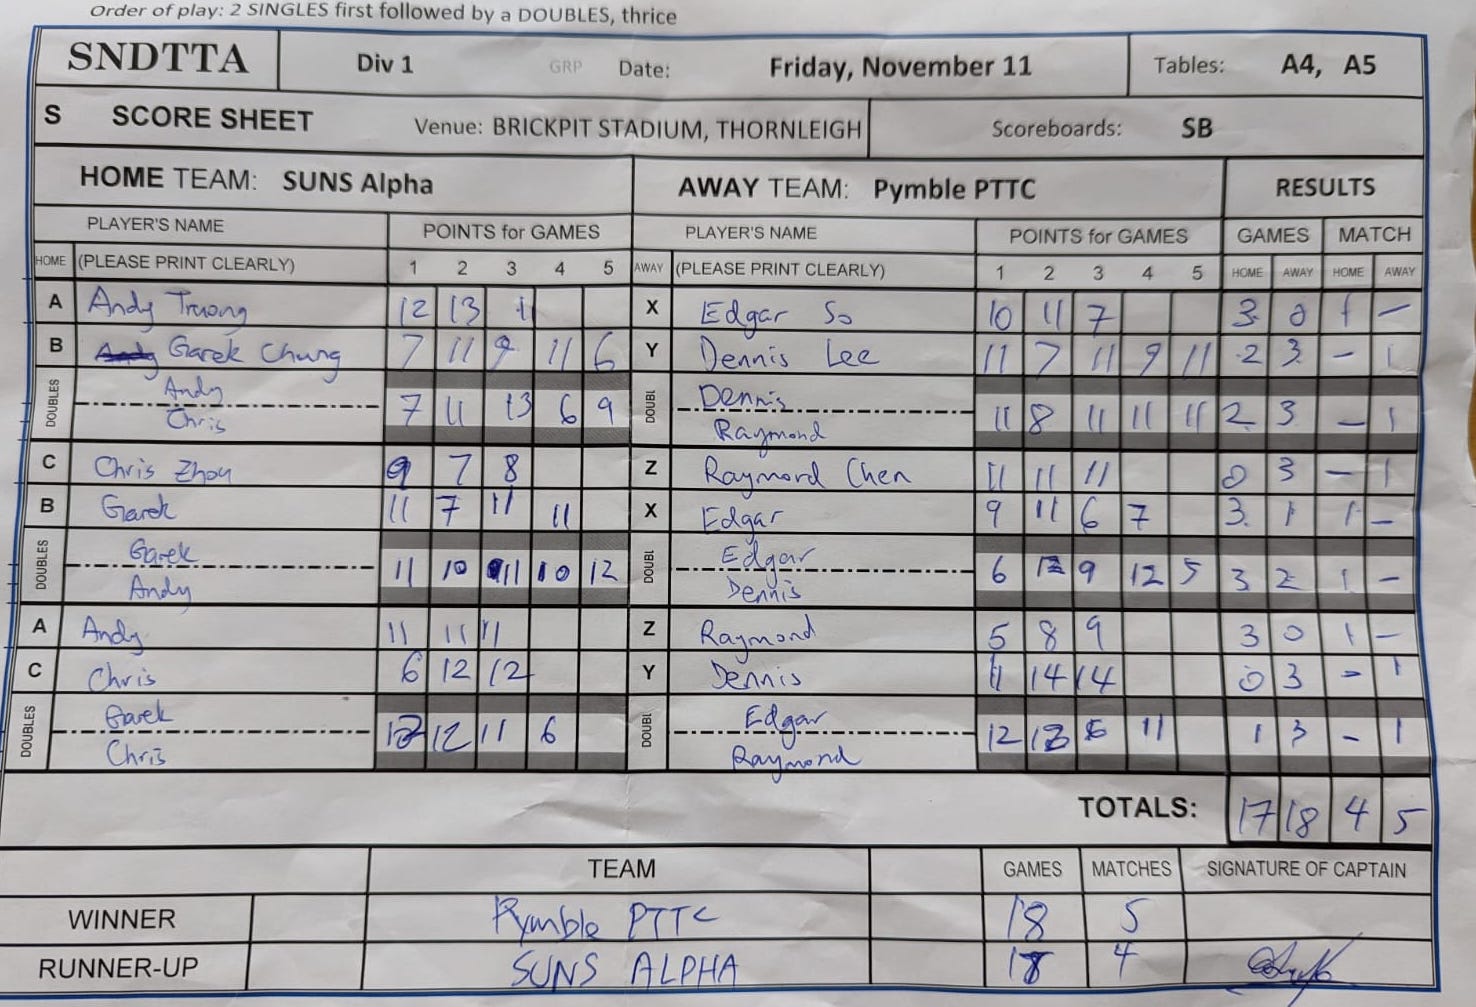 Order of play: 2 SINGLES first followed by a DOUBLES, thrice
SNDTTA Div 1 GRP Date: Friday, November 11 Tables: A4, A5
S SCORE SHEET Venue: BRICKPIT STADIUM, THORNLEIGH Scoreboards: SB
HOME TEAM: SUNS Alpha AWAY TEAM: Pymble PTTC RESULTS
PLAYER'S NAME POINTS for GAMES PLAYER'S NAME POINTS for GAMES GAMES MATCH
HOME (PLEASE PRINT CLEARLY) 1 2 3 4 5 AWAY (PLEASE PRINT CLEARLY) 1 2 3 4 5 HOME AWAY HOME AWAY
A Andy Truong 12 13 11 X Edgar So 10 11 7 3 0 1 –
B Garek Chung 7 11 9 11 6 Y Dennis Lee 11 7 11 9 11 2 3 – 1
DOUBLES Andy DOUBL Dennis
Chris 7 11 13 6 9 Raymond 11 8 11 11 11 2 3 – 1
C Chris Zhou 9 7 8 Z Raymond Chen 11 11 11 0 3 – 1
B Garek 11 7 11 11 X Edgar 9 11 6 7 3 1 1 –
DOUBLES Garek DOUBL Edgar
Andy 11 10 11 10 12 Dennis 6 12 9 12 5 3 2 1 –
A Andy 11 11 11 Z Raymond 5 8 9 3 0 1 –
C Chris 6 12 12 Y Dennis 11 14 14 0 3 – 1
DOUBLES Garek DOUBL Edgar
Chris 12 11 6 Raymond 12 13 6 11 1 3 – 1
TOTALS: 17 18 4 5
TEAM GAMES MATCHES SIGNATURE OF CAPTAIN
WINNER Pymble PTTC 18 5
RUNNER-UP SUNS ALPHA 17 4